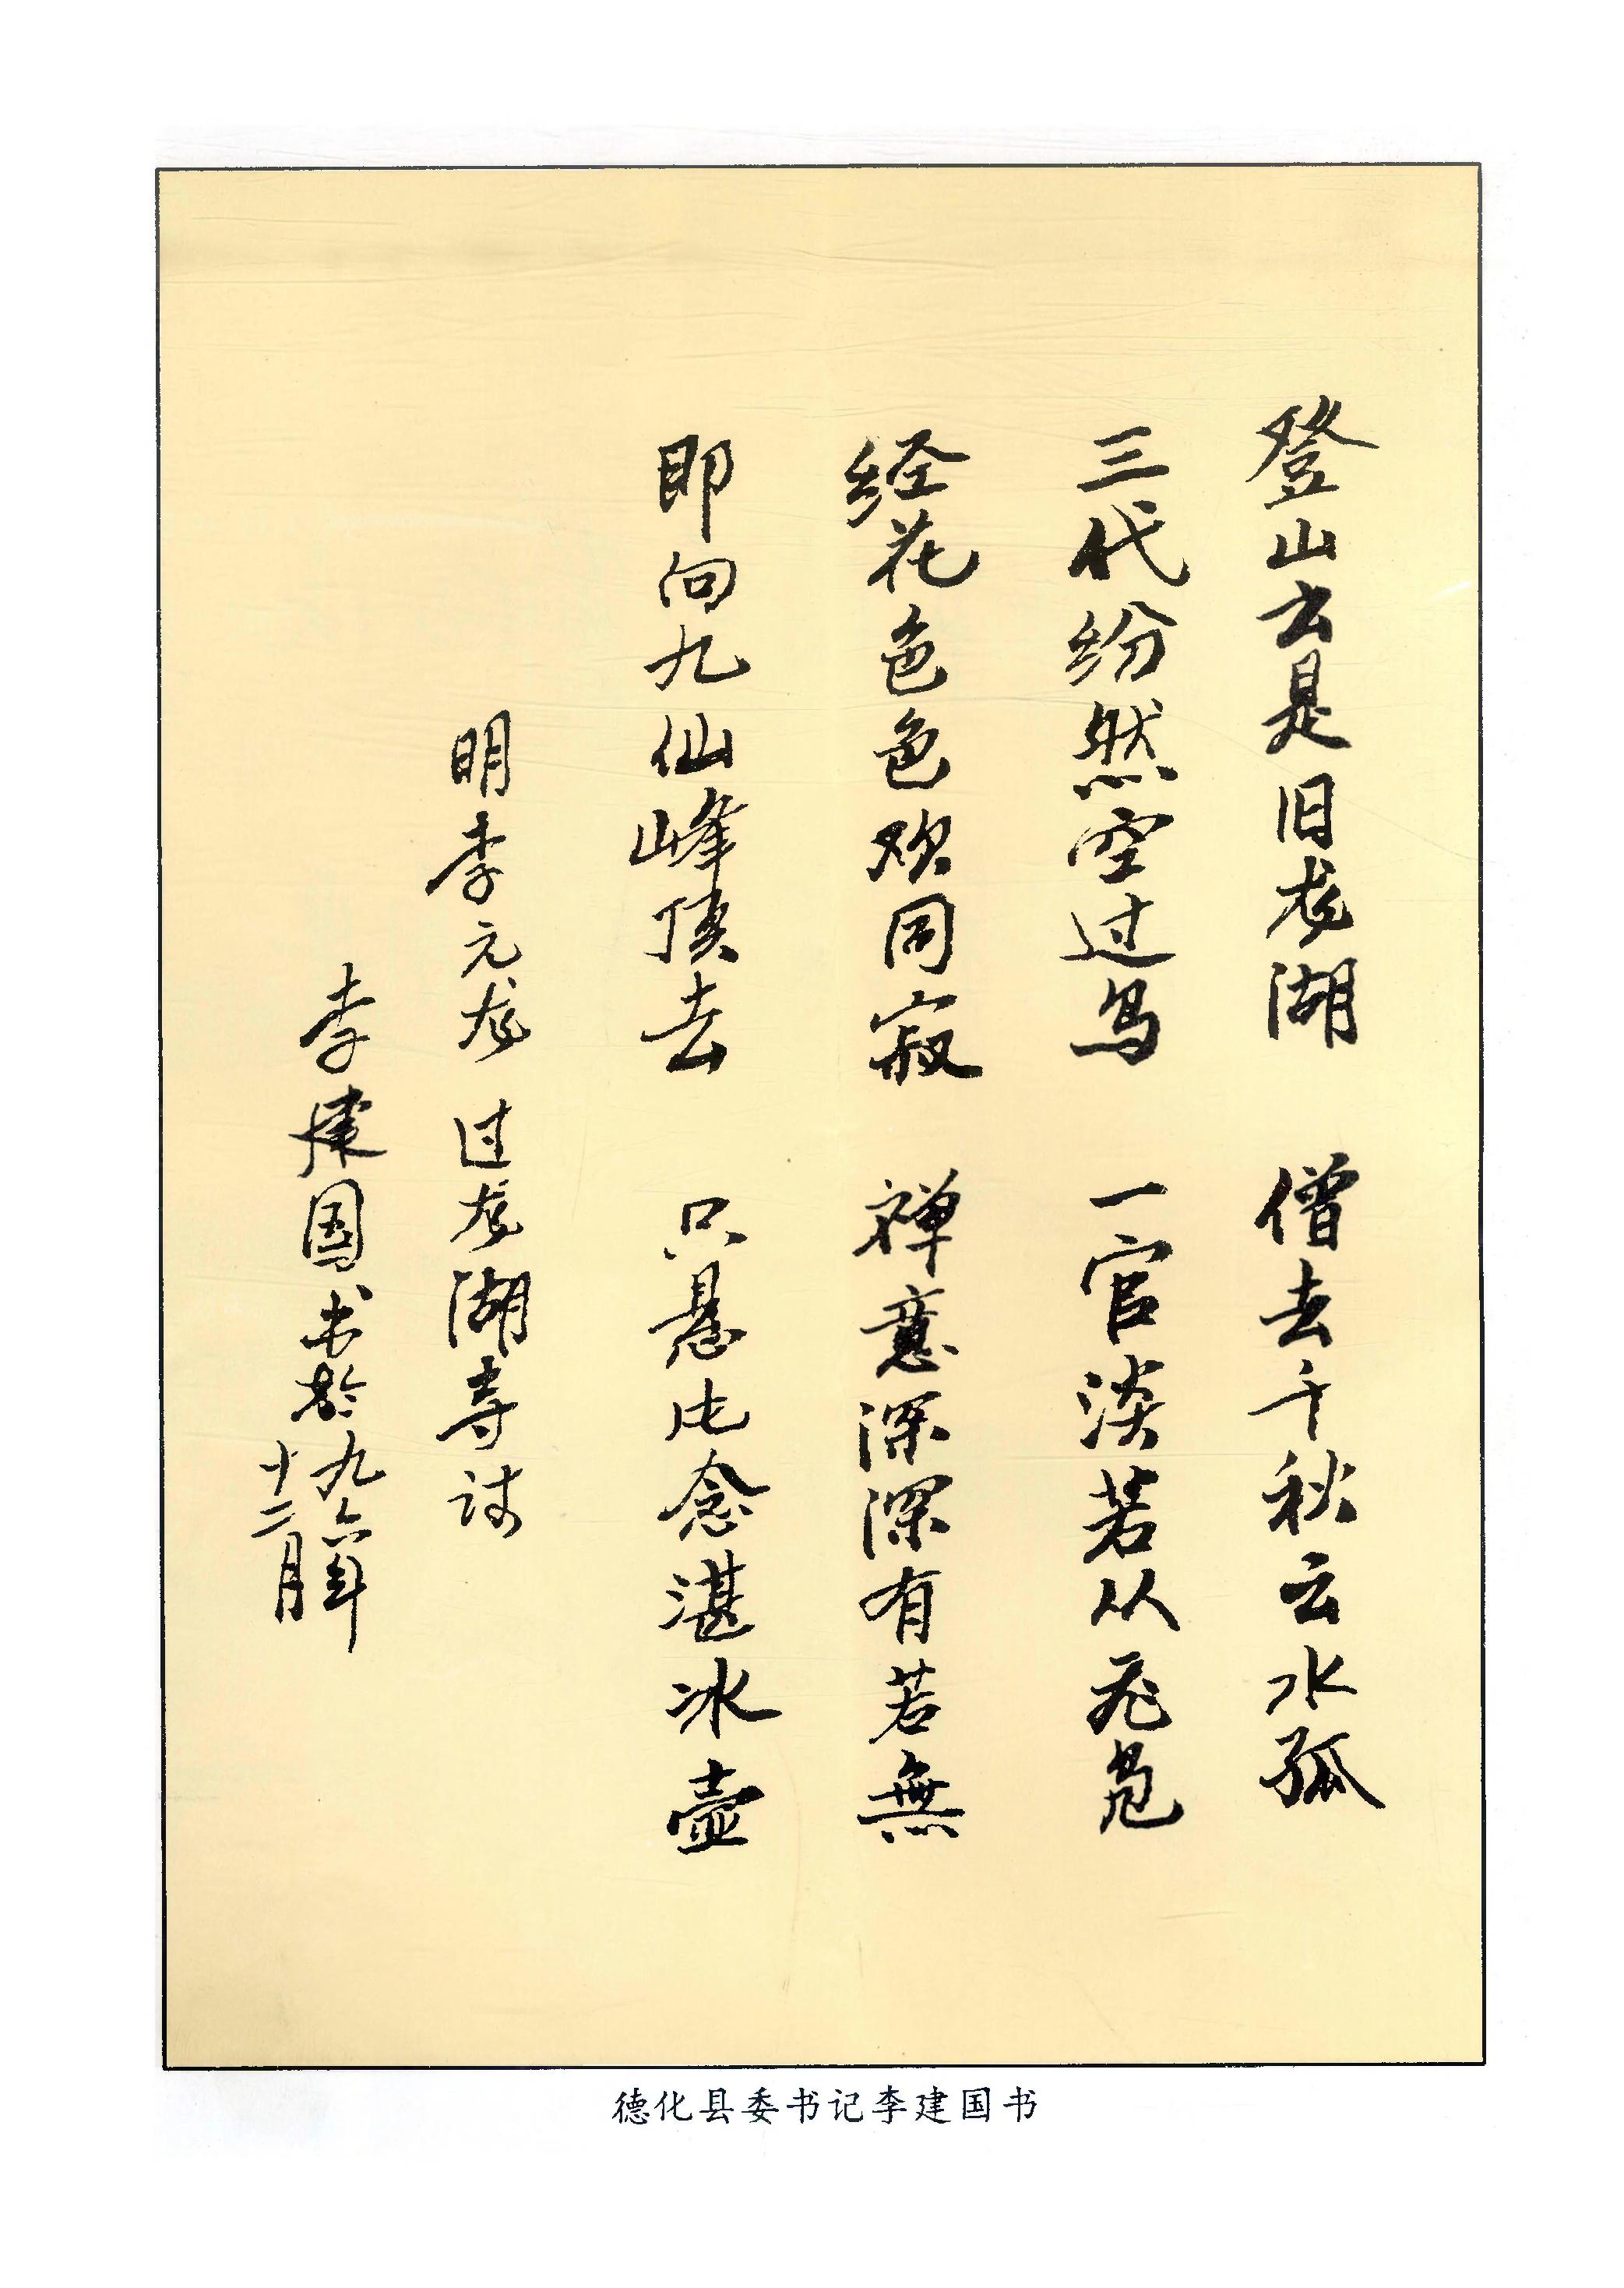 登山云是旧龙湖 僧去千秋云水孤
三代纷然空过鸟 一官淡若从飞凫
经花色色欢同寂 禅意深深有若無
即向九仙峰顶去 只悬此念湛冰壶
明李元龙 过龙湖寺诗
李建国书於九六年
十二月
德化县委书记李建国书